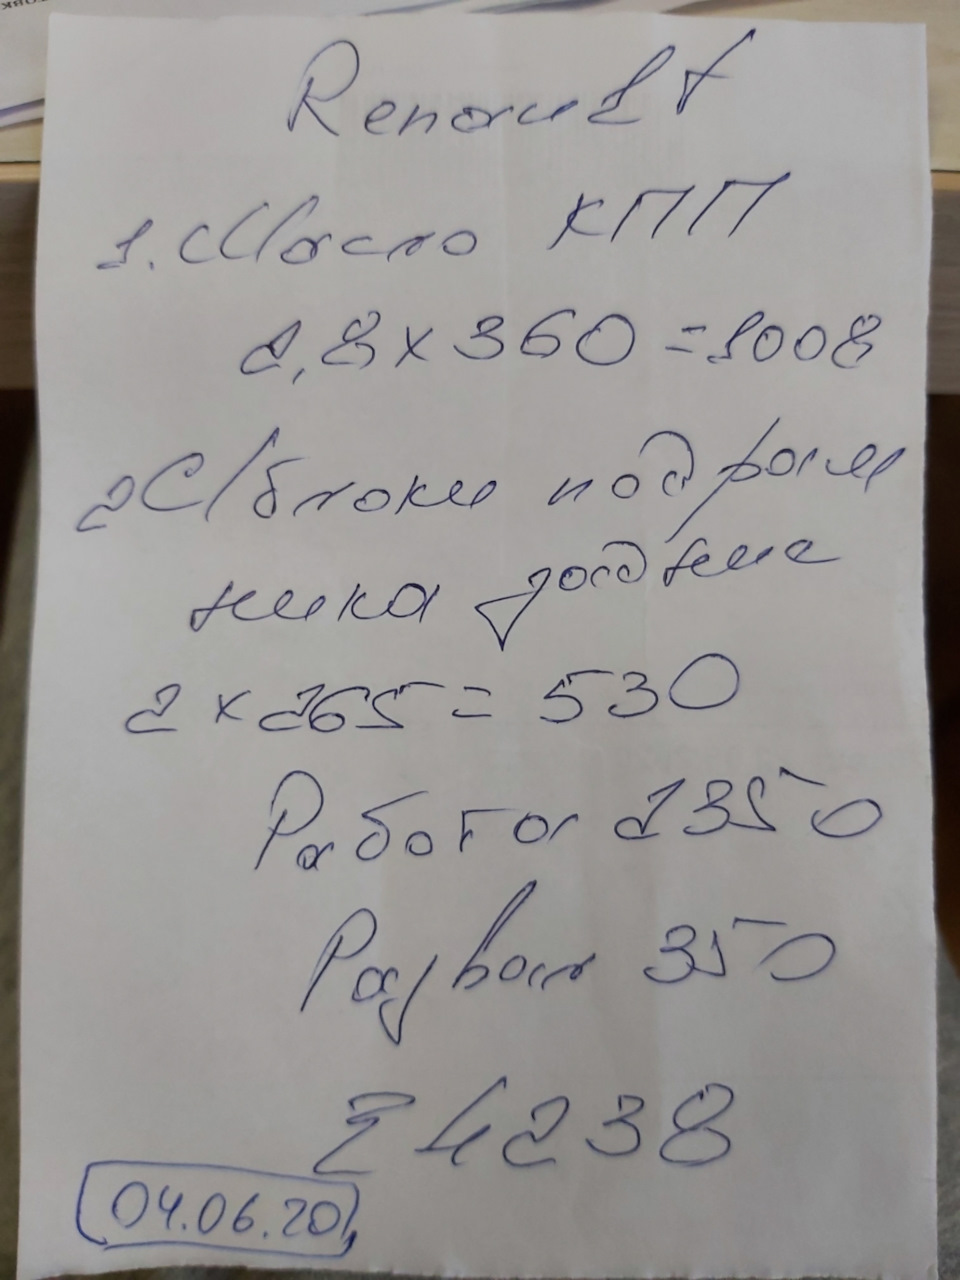 Renault
1. Масло КПП
2,8 x 360 = 1008
2 С/блоки подрам
ника задние
2 x 265 = 530
Работа 2350
Развал 350
Σ 4238
04.06.20